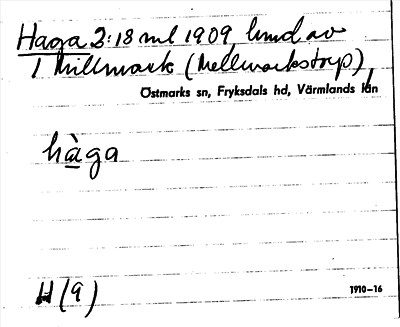 Haga 2:18 ml 1909, hmd av
1 Millmark (Mellmarkstorp),
Östmarks sn, Fryksdals hd, Värmlands län
hàga
H (9)
1910–16